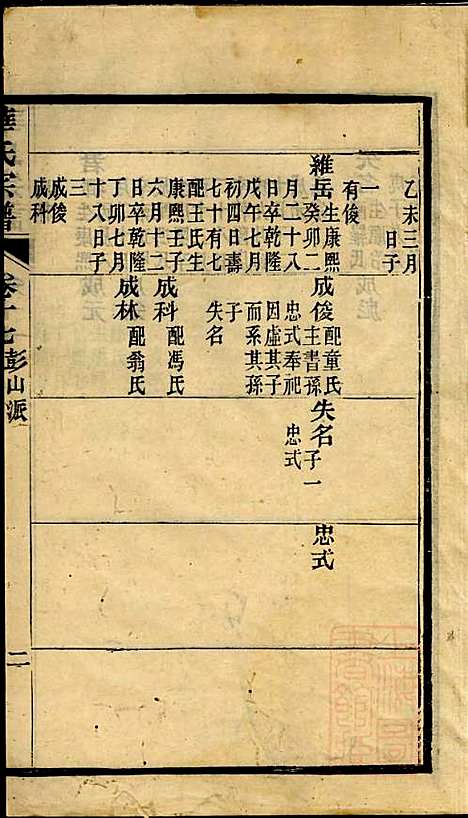 乙未三月
日子
一
有俊
維岳 生康熙
癸卯二
月二十八
日卒乾隆
戊午七月
初四日壽
七十有七
配王氏生
康熙壬子
六月十二
日卒乾隆
丁卯七月
十八日子
三
成俊
成科
成俊 配童氏
主書孫
忠式奉祀
因虛其子
而系其孫
子
失名
成科 配馮氏
成林 配翁氏
失名 子一
忠式
忠式
華氏宗譜
卷十七彭山派
二